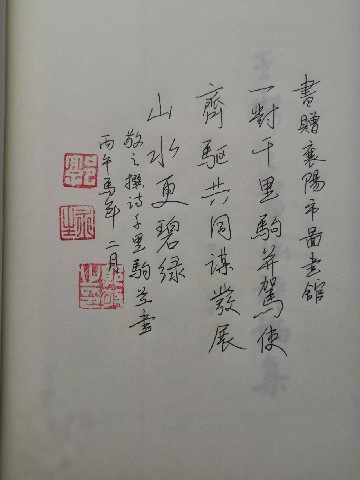 書贈襄陽市圖書館
一對千里駒并駕使
齊駆共同謀發展
山水更碧綠
敬之撰詩千里駒並書
丙午馬年二月